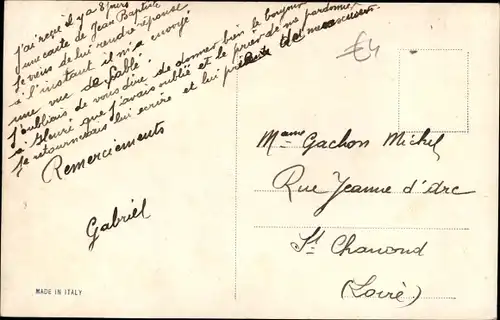 J'ai reçue il y a 8 jours
une carte de Jean Baptiste
Je viens de lui rendre réponse
à l'instant il m'a envoyé
une vue de Sablé.
J'oubliais de vous dire de donner bien le bonjour
à que j'avais oublié et le prier de me pardonner.
Je retournerais lui écrire et lui de m'excuser.
Remerciements
Gabriel
MADE IN ITALY
£4
Mame Gachon Michel
Rue Jeanne d'Arc
St Chamond
(Loire)